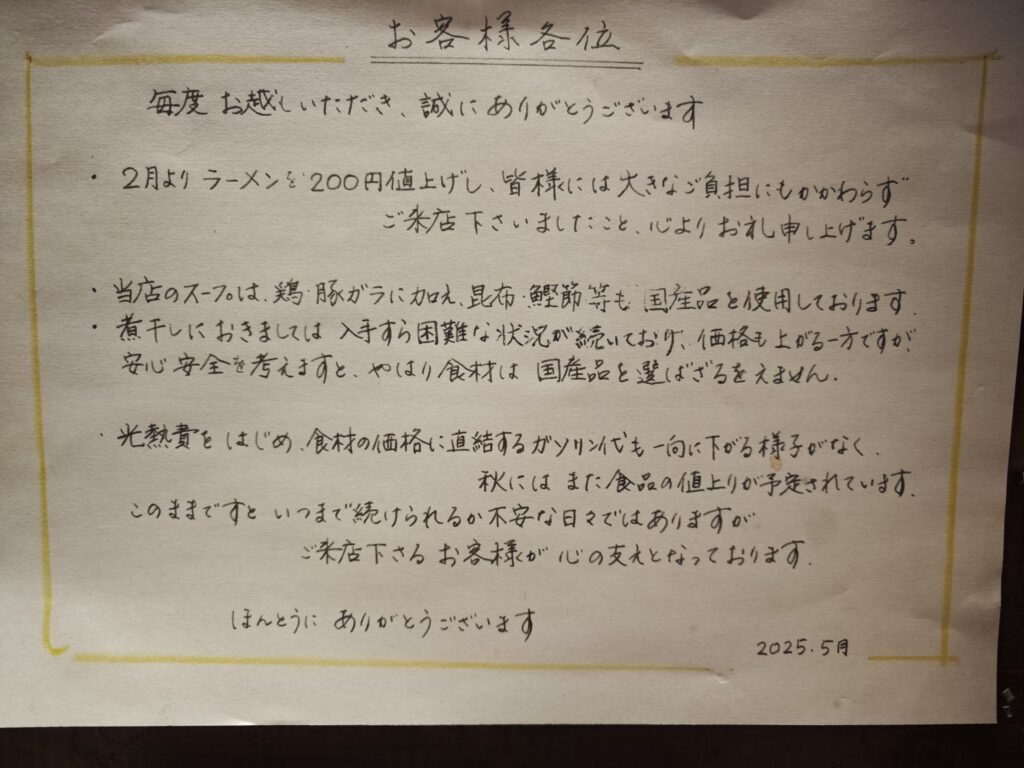 お客様各位
毎度 お越しいただき、誠に ありがとうございます
・ 2月より ラーメンを 200円値上げし、皆様には 大きなご負担にもかかわらず
ご来店下さいましたこと、心より お礼申し上げます。
・ 当店のスープは、鶏・豚ガラに加え、昆布・鰹節等も 国産品を使用しております.
・ 煮干しに おきましては 入手すら困難な状況が続いており、価格も上がる一方ですが、
安心安全を考えますと、やはり食材は 国産品を選ばざるをえません.
・ 光熱費を はじめ、食材の価格に直結するガソリン代も 一向に下がる様子がなく.
秋には また食品の値上りが予定されています.
このままですと いつまで続けられるか不安な日々ではありますが
ご来店下さる お客様が 心の支えとなっております.
ほんとうに ありがとうございます
2025.5月